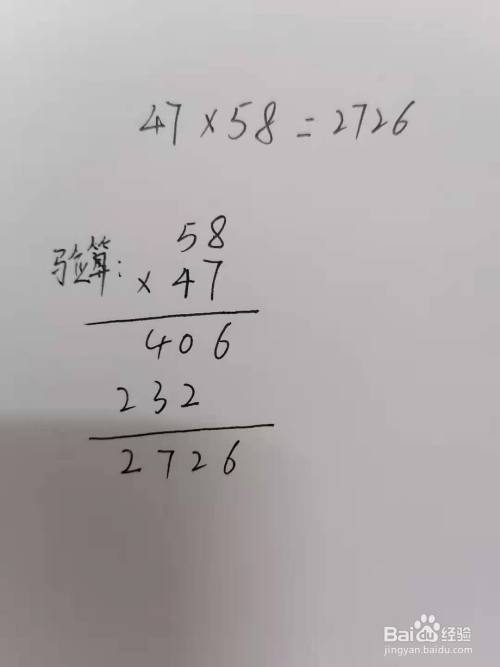 47×58=2726
58
验算: ×47
406
232
2726
Baidu经验
jingyan.baidu.com